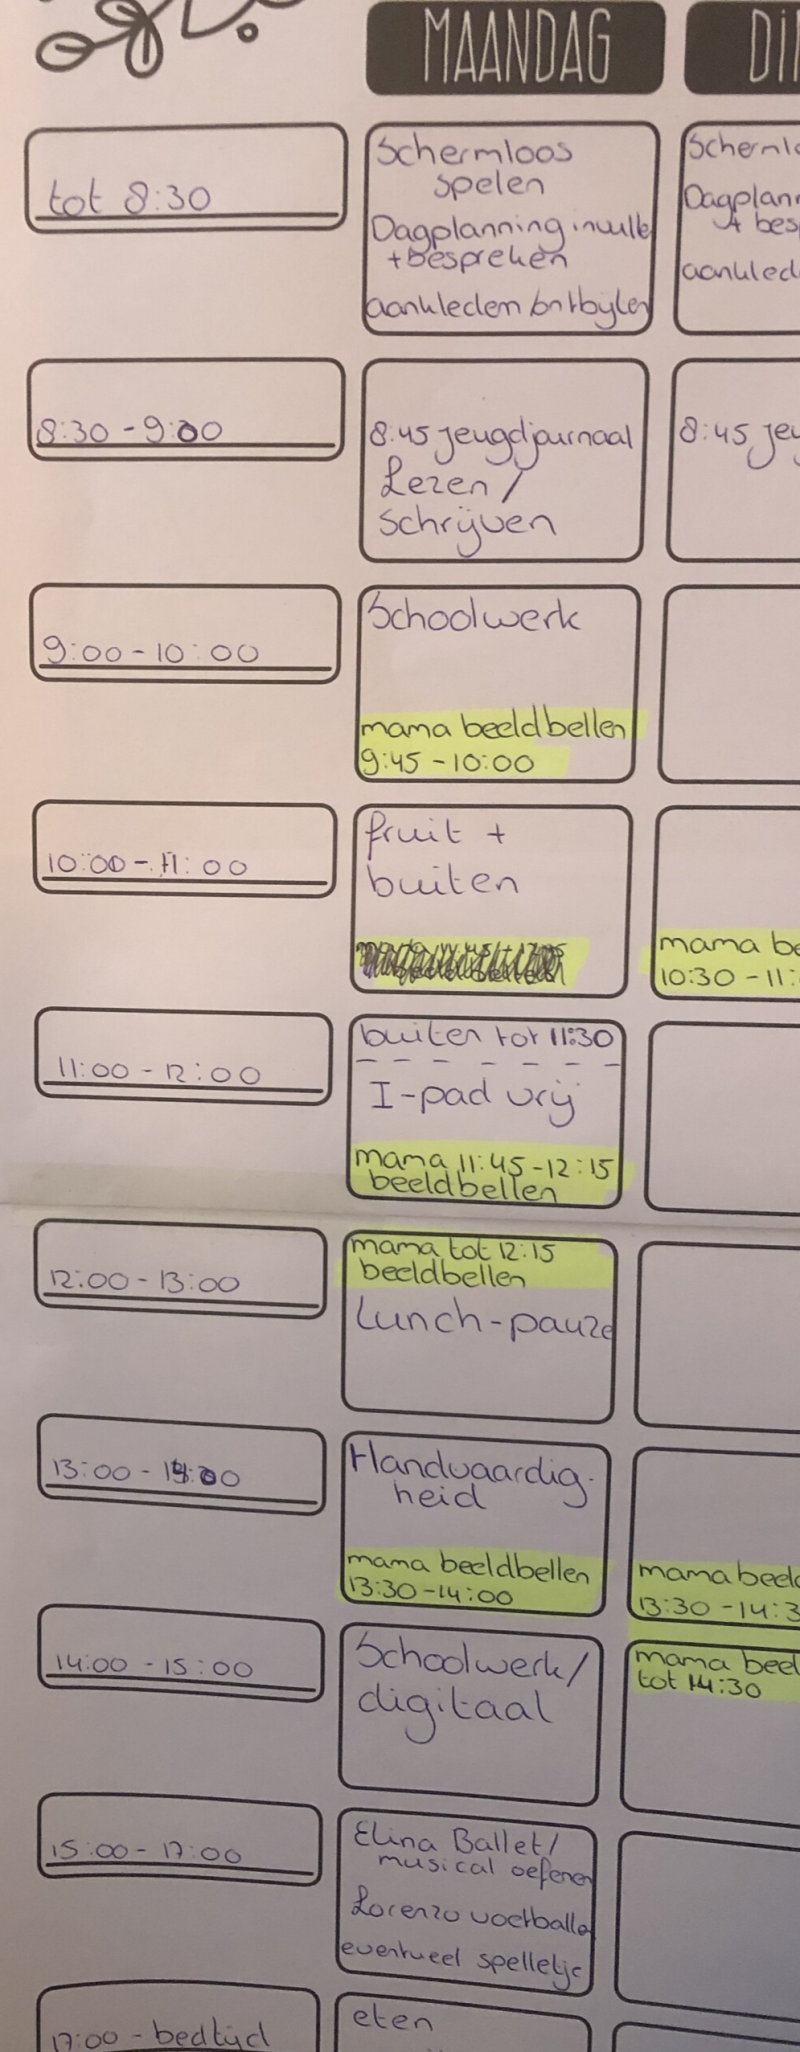 MAANDAG
DI
tot 8:30
Schermloos
spelen
Dagplanning invulle
+bespreken
aankleden/ontbyten
Scherml
Dagplan
+ besp
aankled
8:30 - 9:00
8:45 jeugdjournaal
Lezen /
schrijven
8:45 jeu
9:00 - 10:00
Schoolwerk
mama beeldbellen
9:45 - 10:00
10:00 - 11:00
fruit +
buiten
mama be
10:30 - 11:
11:00 - 12:00
buiten tot 11:30
I-pad vrij
mama 11:45 - 12:15
beeldbellen
12:00 - 13:00
mama tot 12:15
beeldbellen
Lunch-pauze
13:00 - 14:00
Handvaardig-
heid
mama beeldbellen
13:30 - 14:00
mama beeld
13:30 - 14:3
14:00 - 15:00
Schoolwerk/
digitaal
mama beel
tot 14:30
15:00 - 17:00
Elina Ballet/
musical oefenen
Lorenzo voetballe
eventueel spelletje
17:00 - bedtijd
eten